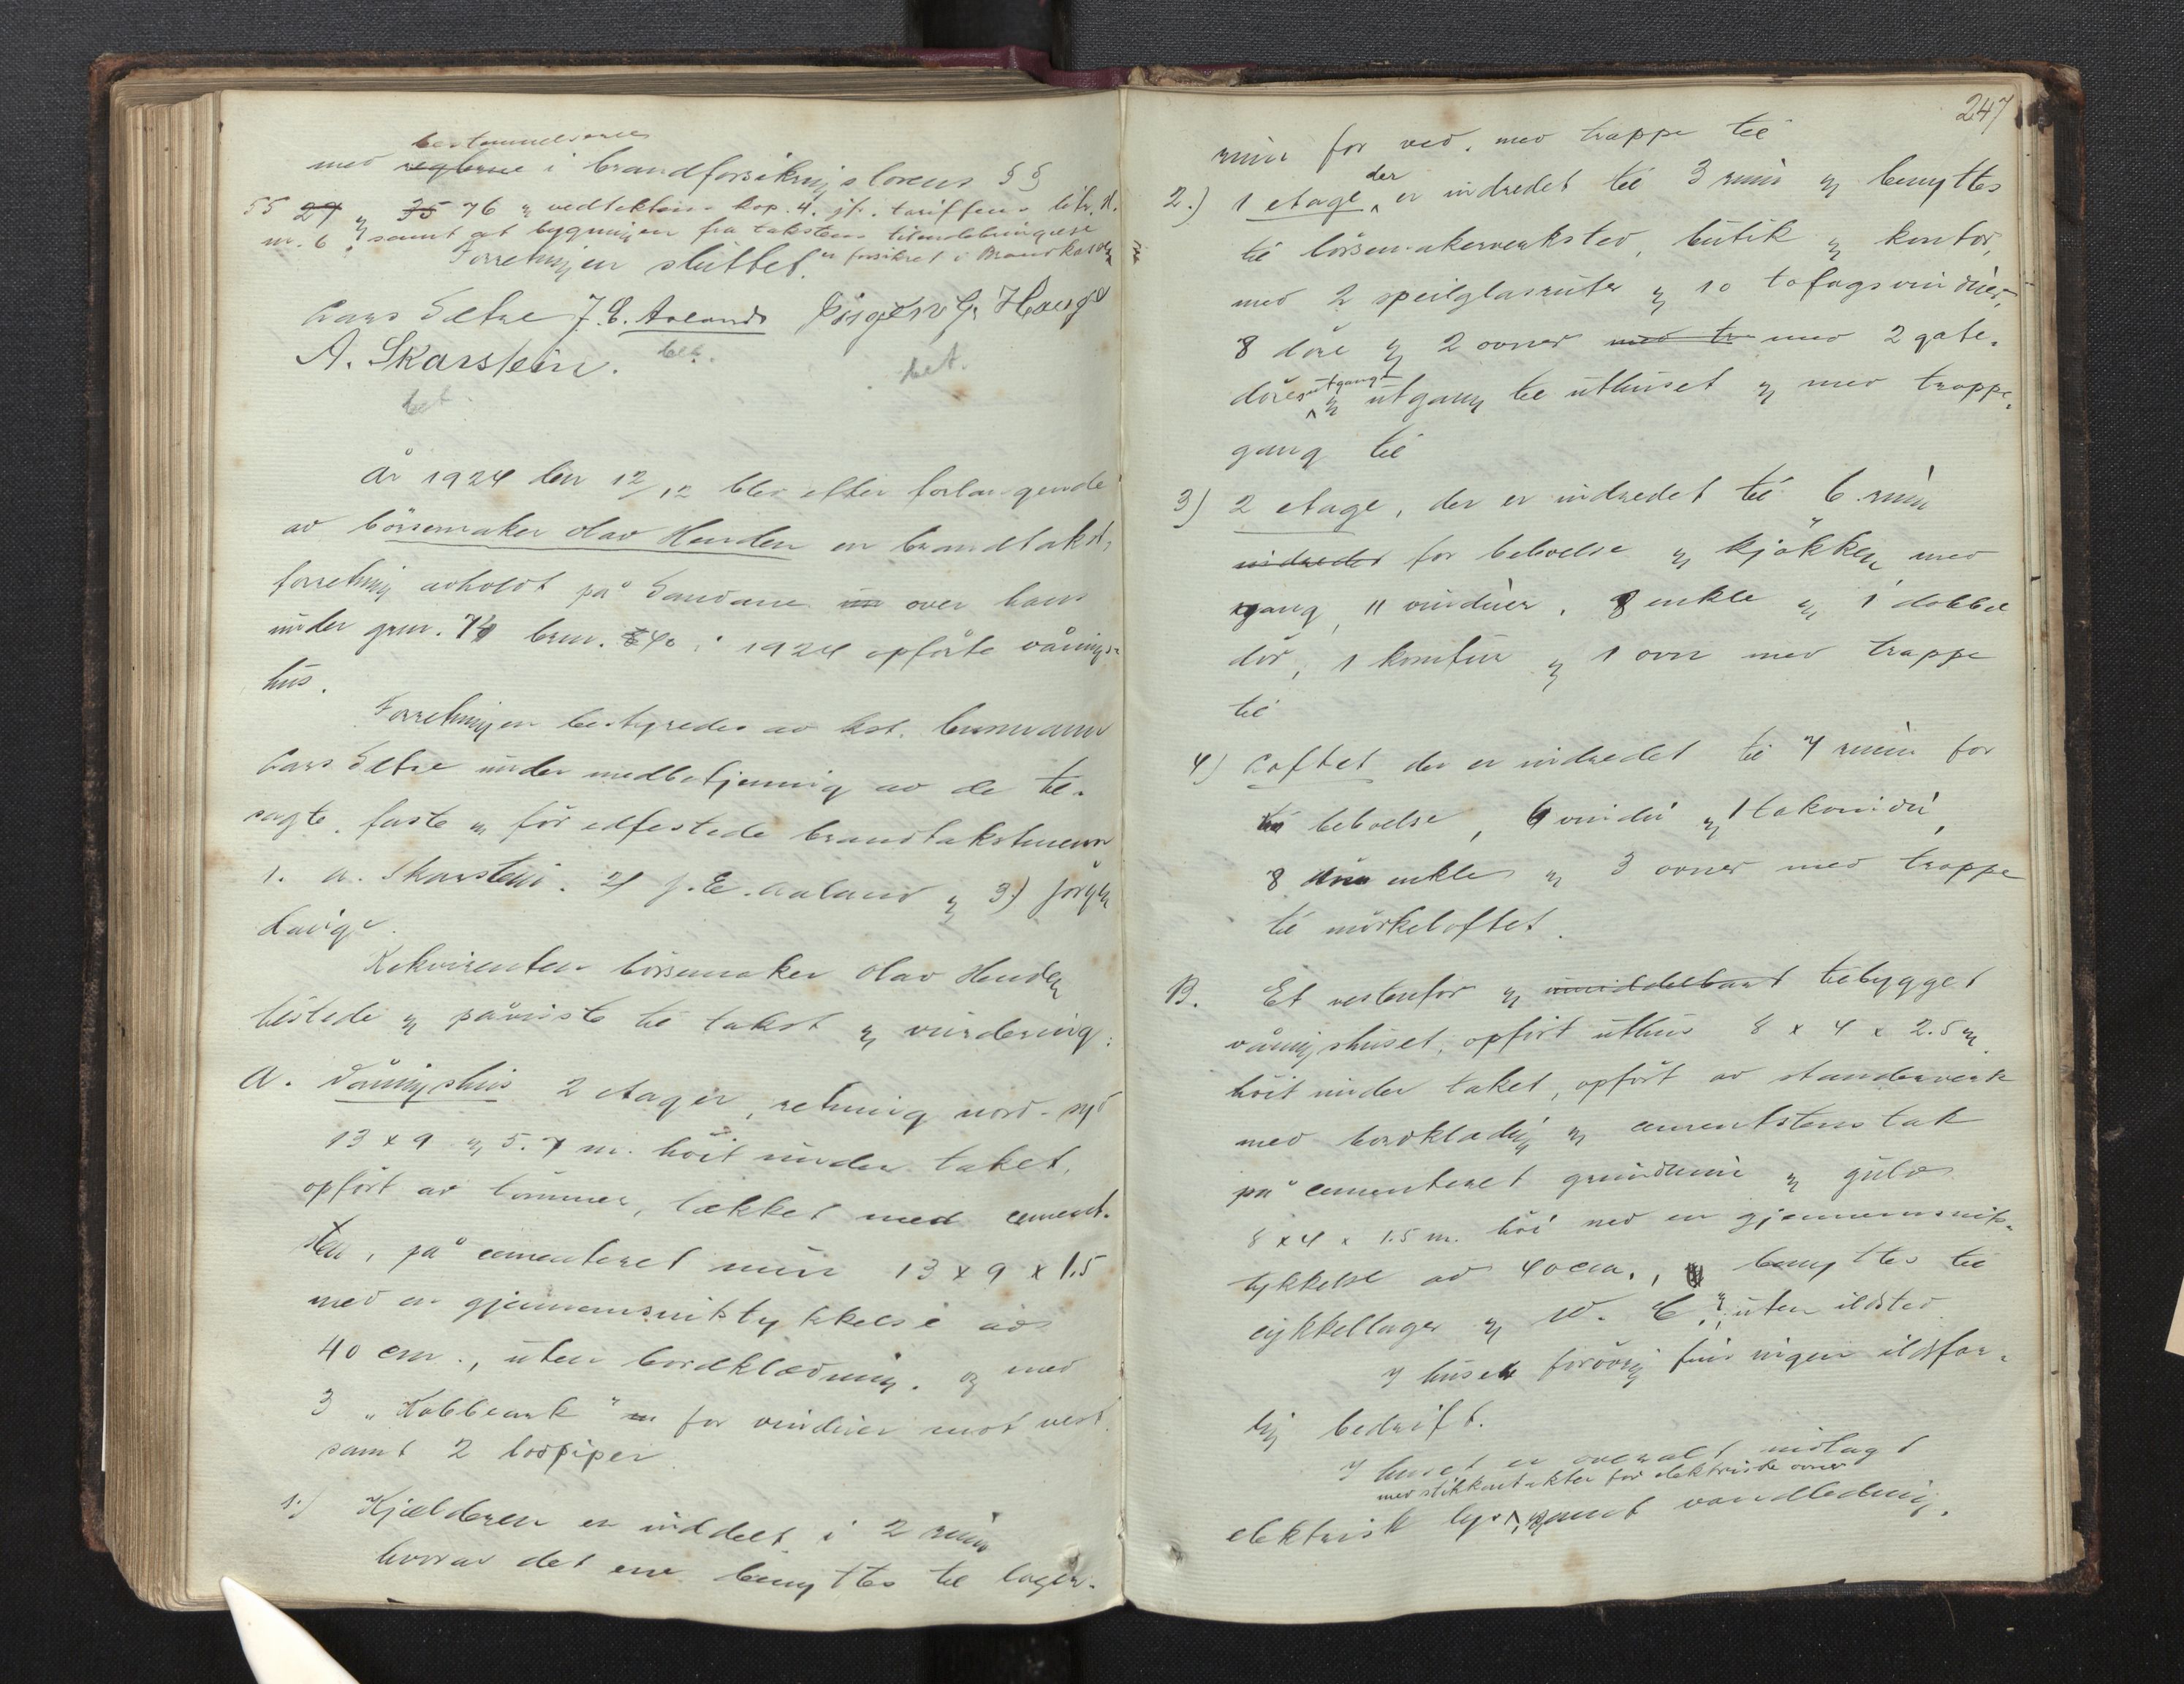 bestemmelserne
med reglerne i brandforsikringslovens §§
55 27 og 35 76 og vedtektens kap. 4. jfr. tariffens litr. H.
nr. 6. samt at bygningen fra takstens
Forretningen sluttet. er forsikret i Brandkassen
Lars Sætre J. E. Aaland Jörgen G. Hauge
A. Skarstein. bet. bet.
bet.
År 1924 den 12/12 blev efter forlangende
av börsemaker Olav Henden en brandtakst,
forretning avholdt på Sandane over hans
under grnr. 74 brnr. 40 i 1924 opförte vånings-
hus.
Forretningen bestyredes av kst. lensmann
Lars Sætre under medbetjening av de til-
sagte, faste og för edfestede brandtakstmenn
1. A. Skarstein. 2) J. E. Aaland og 3) Jörgen
Hauge.
Rekvirenten börsemaker Olav Henden
tilstede og påviste til takst og vurdering:
A. Våningshus 2 etager, retning nord-syd
13 x 9 og 5.7 m. höit under taket,
opfört av tömmer, tækket med cement-
sten, på cementeret mur 13 x 9 x 1.5
med en gjennemsnitstykkelse av
40 cm., uten bordklædning. og med
3 "Kobbeark" for vinduer mot vest.
samt 2 bordpiper
1.) Kjælderen er inddelt i 2 rum
hvorav det ene benyttes til lager-
247
rum for ved, med trappe til
2.) 1 etage der er indredet til 3 rum og benyttes
til börsemakerverksted, butik og kontor,
med 2 speilglasruter og 10 tofagsvinduer,
8 döre og 2 ovner med tr med 2 gate-
döresutgang og utgang til uthuset og med trappe-
gang til
3) 2 etage, der er indredet til 6 rum
indredet for beboelse og kjökken med
gang, 11 vinduer, 8 enkle og 1 dobbel
dör, 1 komfur og 1 ovn med trappe
til
4) Loftet der er indredet til 7 rum for
til beboelse, 6 vindu og 1 takvindu,
8 döre enkle og 3 ovner med trappe
til mörkeloftet.
B. Et vestenfor og umiddelbart tilbygget
våningshuset, opfört uthus 8 x 4 x 2.5 m.
höit under taket, opfört av standerverk
med bordklædnig og cementstens tak
på cementeret grundmur og gulv
8 x 4 x 1.5 m. höi med en gjennemsnits-
tykkelse av 40 cm., benyttes til
cykkellager og W. C. og uten ildsted.
I huset forövrig fins ingen ildsfar-
lig bedrift.
I huset er overalt indlagt
med stikkontakter for elektriske ovner
elektrisk lys, samt vandledning.